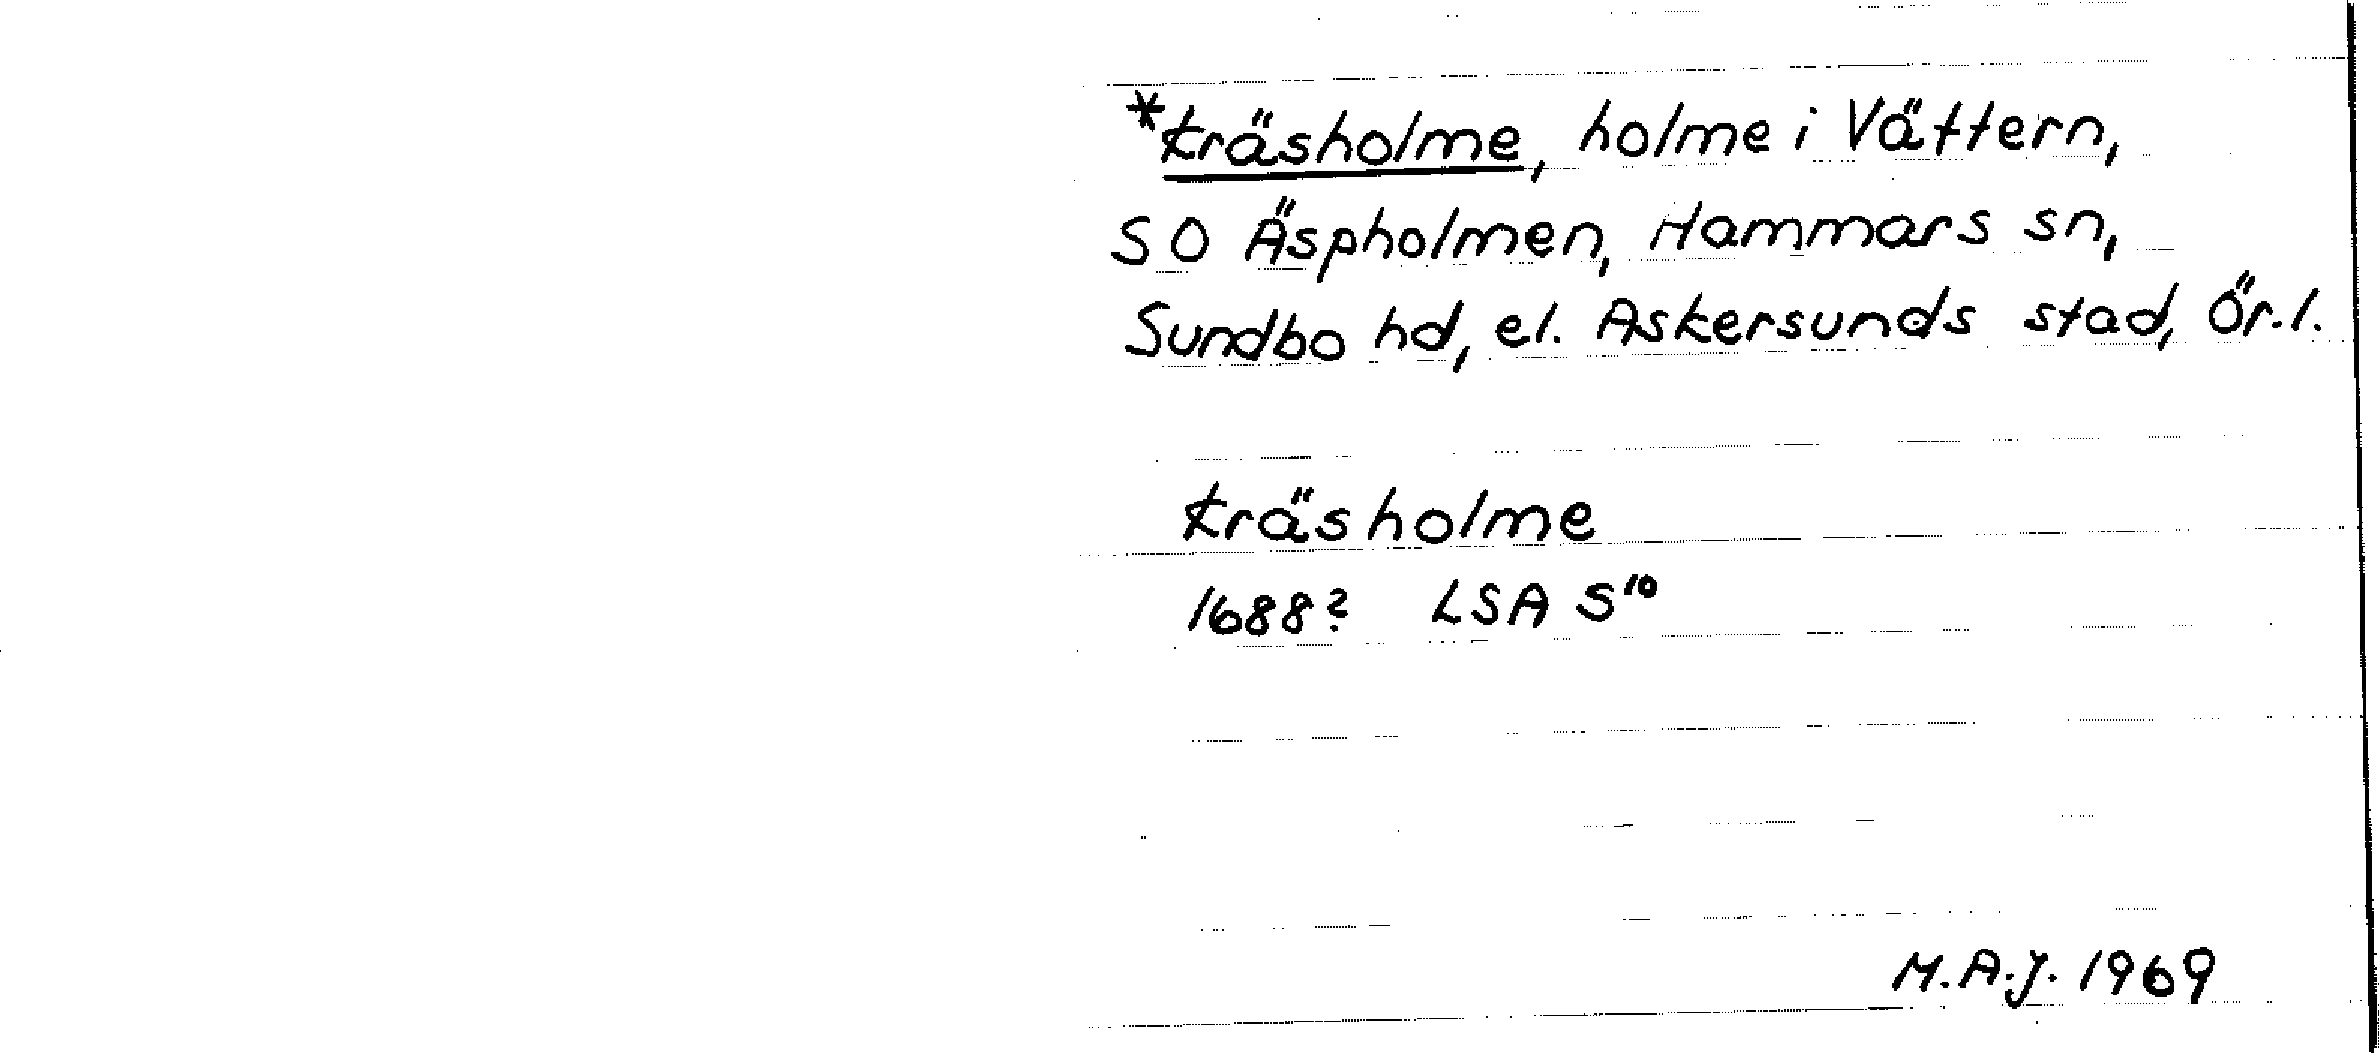 *Kräsholme, holme i Vättern,
SO Äspholmen, Hammars sn,
Sundbo hd, el. Askersunds stad, Ör. l.
Kräsholme
1688? LSA S¹⁰
M.A.J. 1969